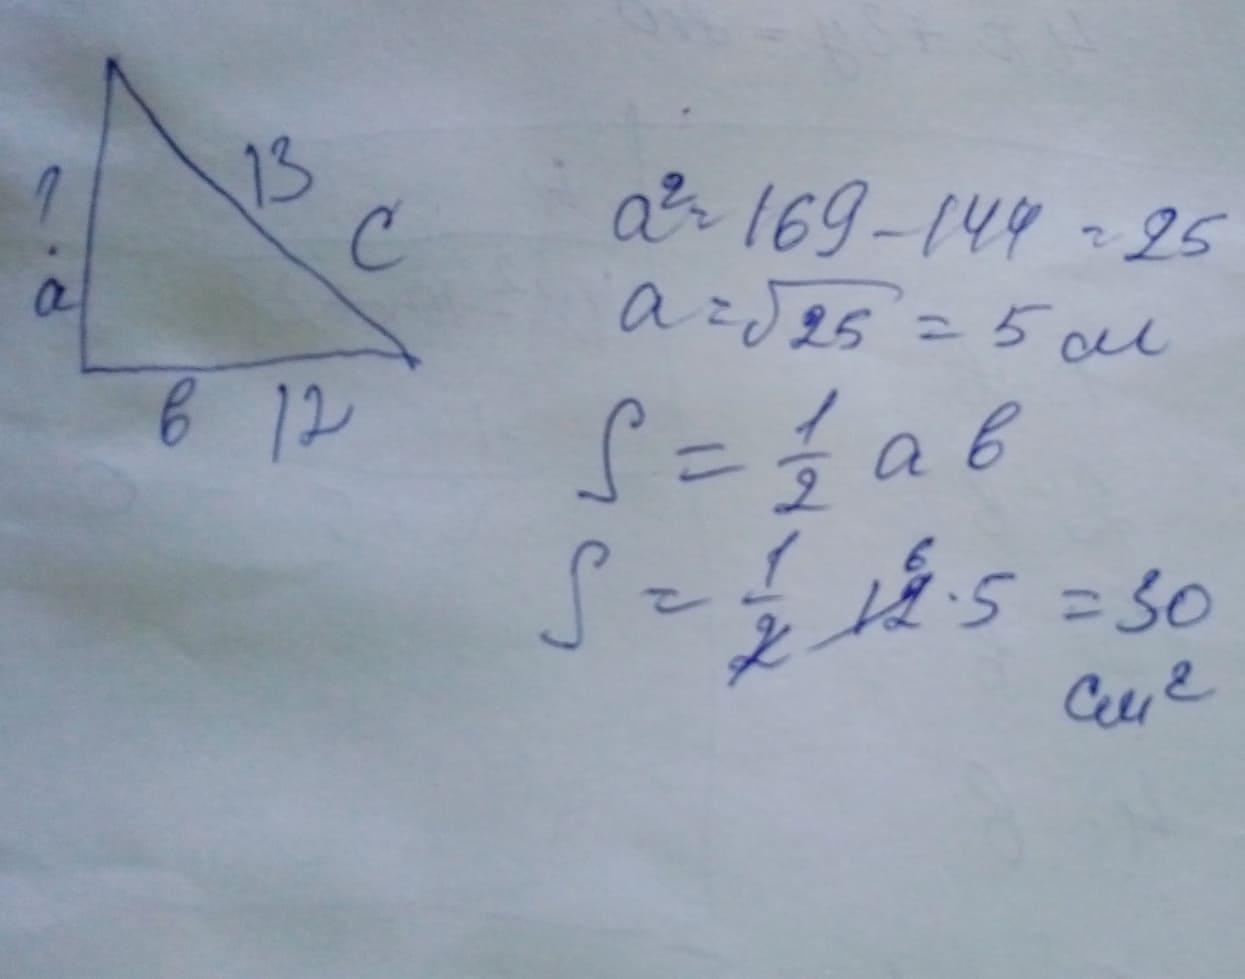 ?
a
13
C
в 12
a² = 169 - 144 = 25
a = √25 = 5 см
S = 1/2 a в
S = 1/2 12 6 · 5 = 30
см²